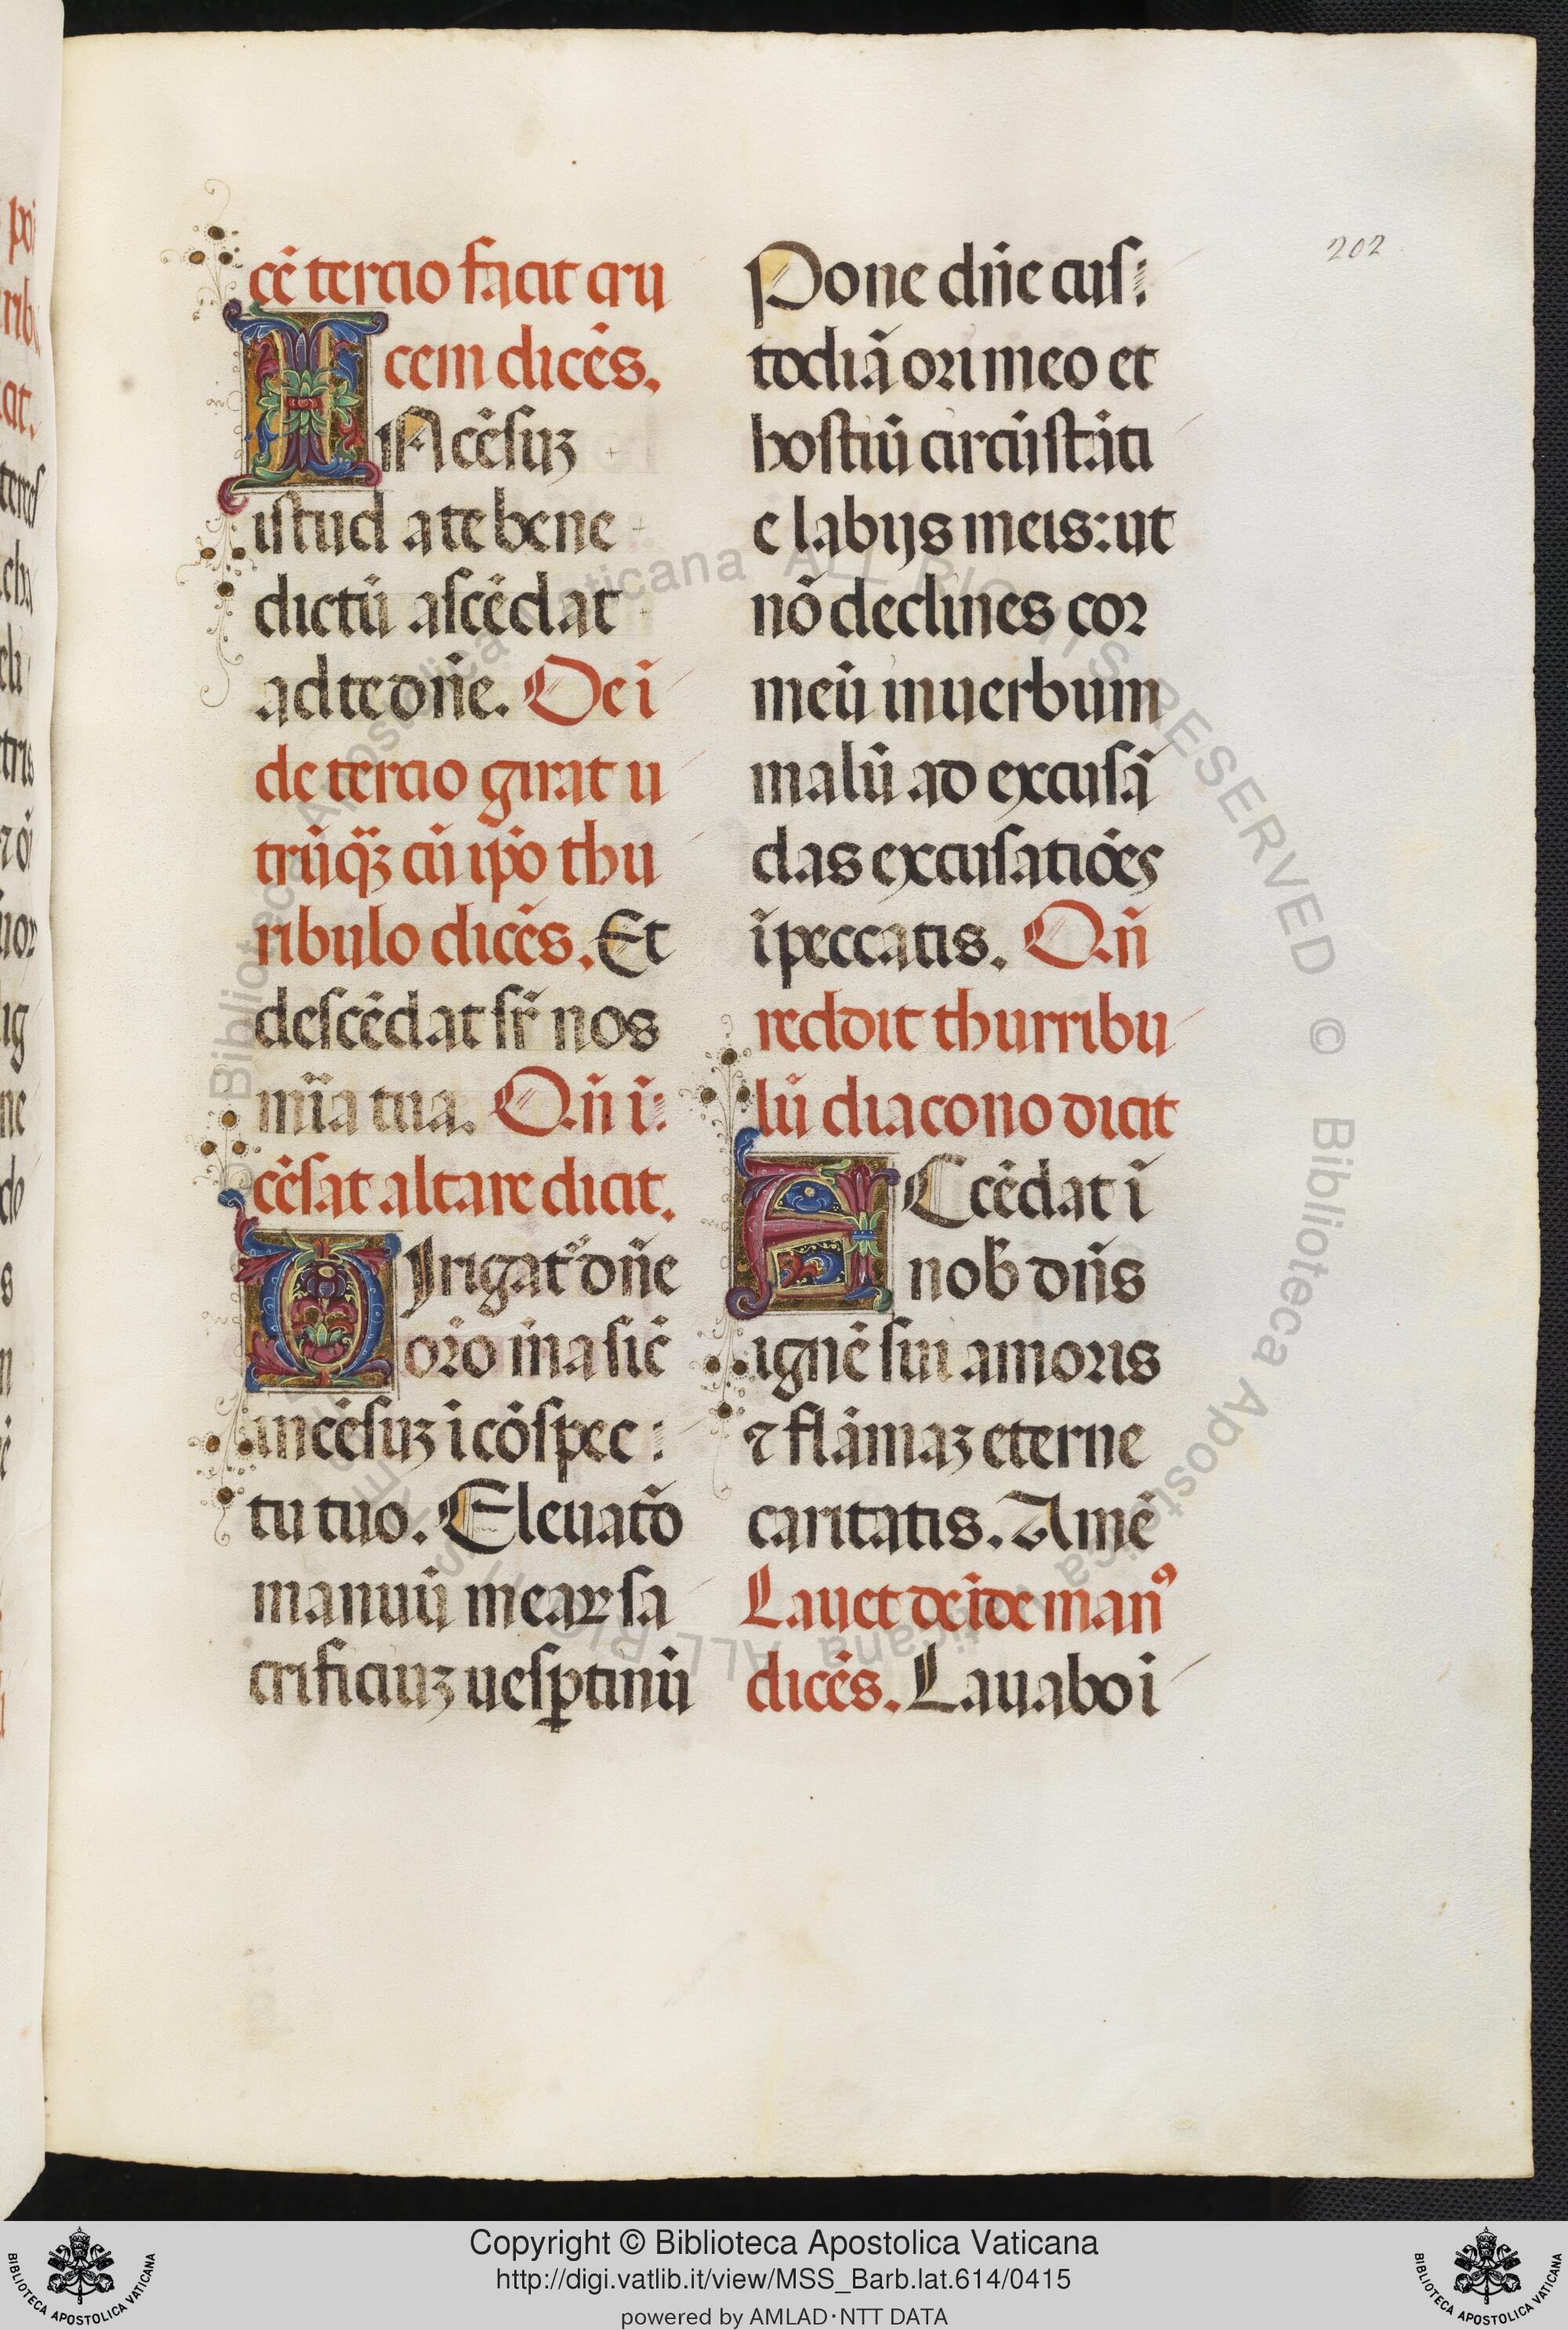 cē tercio facit cru
cem dicēs.
INcēsuꝫ
istud a te bene
dictū ascēdat
ad te dn̄e. De ī
de tercio girat u
trūq̄ꝫ cū ip̄o thu
ribulo dicēs. Et
descēdat sr̄ nos
mīa tua. Qn̄ ī:
cēsat altare dicit.
DYrigat᷑ dn̄e
or̄o m̄a sic̄
incēsuꝫ ī cōspec:
tu tuo. Eleuatō
manuū meaꝝ sa
crificiuꝫ uesꝑtinū
Pone dn̄e cus:
todiā ori meo et
hostiū circūstāti
e labijs meis: ut
nō declines cor
meū in uerbum
malū ad excusā
das excusatiōes
ī peccatis. Qn̄
reddit thurribu
lū diacono dicit
ACcēdat ī
nob̄ dn̄s
ignē sui amoris
⁊ flāmaꝫ eterne
caritatis. Amē
Lauet deīde manꝰ
dicēs. Lauabo ī
202
Copyright © Biblioteca Apostolica Vaticana
http://digi.vatlib.it/view/MSS_Barb.lat.614/0415
powered by AMLAD·NTT DATA
BIBLIOTECA APOSTOLICA VATICANA
BIBLIOTECA APOSTOLICA VATICANA